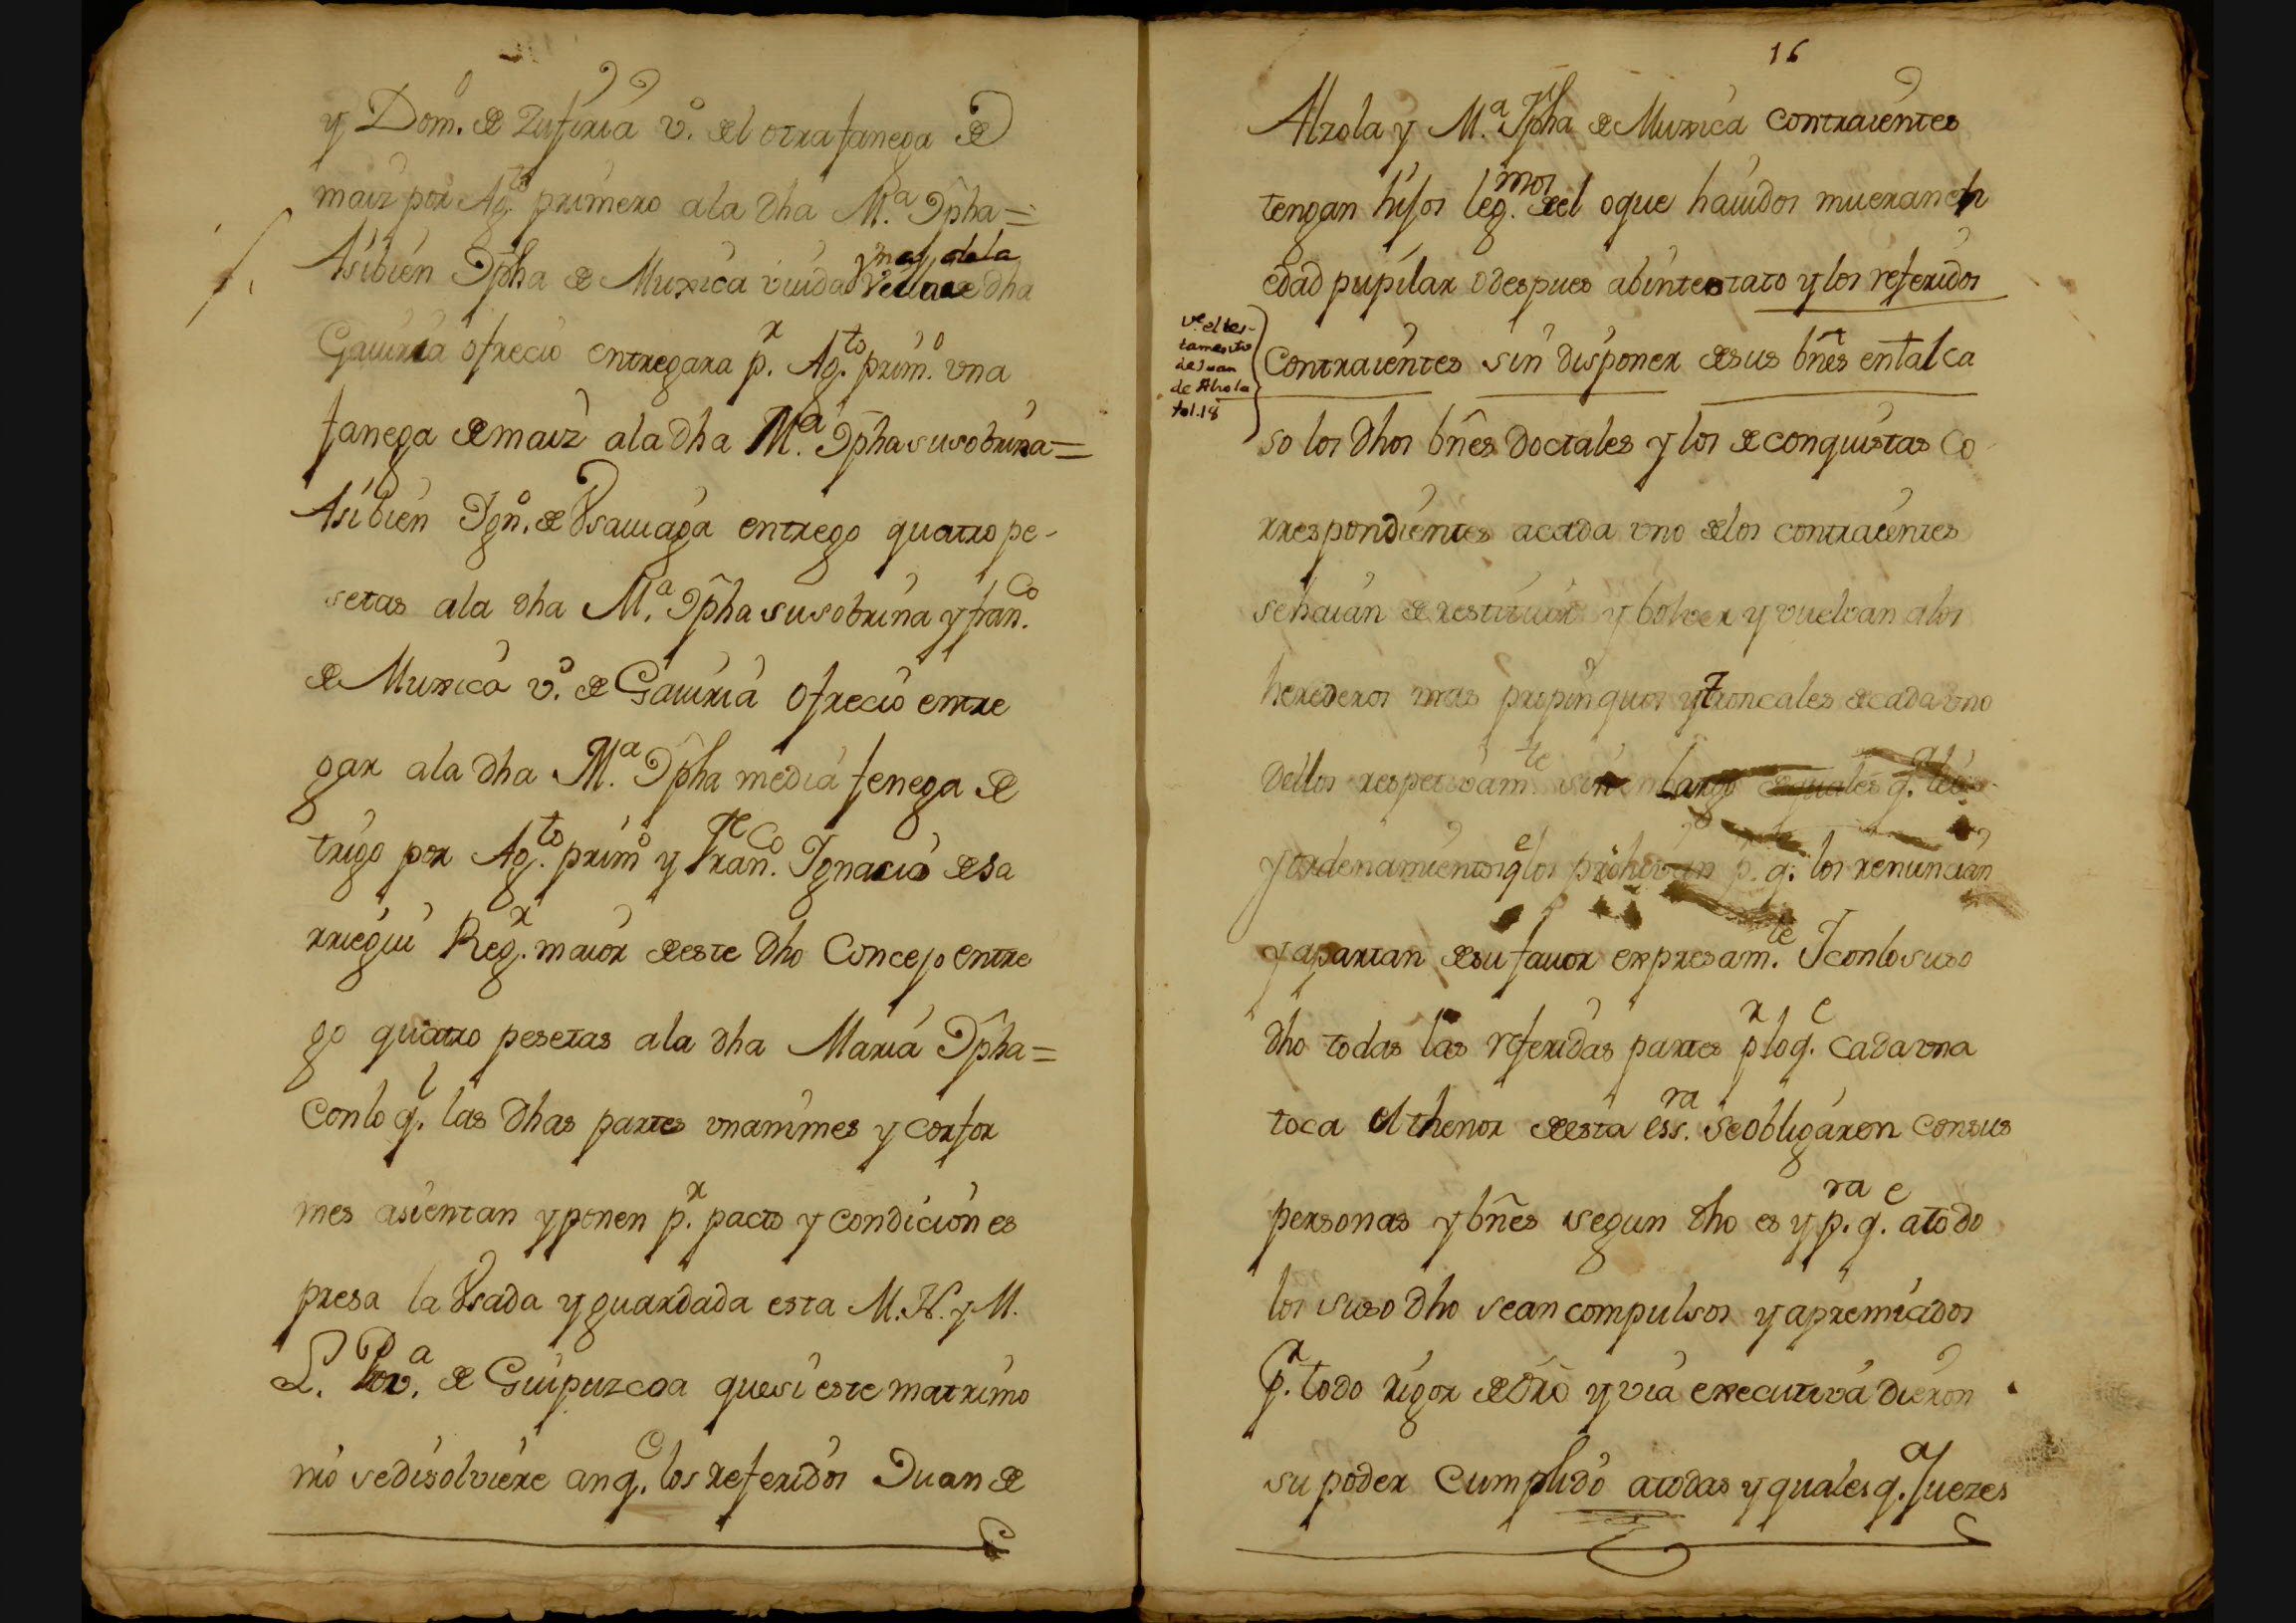 y Dom.o de Zufiria v.o del otra fanega de
maiz por Ag.to primero ala dha M.a Jpha=
Asibien Jpha de Muxica viuda ynag. dela dha
Gauiria ofrecio entregara p.r Ag.to prim.o vna
fanega de maiz ala dha M.a Jpha susobrina=
Asibien Ygn.o de Vsauiaga entrego quatro pe-
setas ala dha M.a Jpha susobrina y fran.co
de Muxica v.o de Gauiria Ofrecio entre
gar ala dha M.a Jpha media fenega de
trigo por Ag.to prim.o y Fran.co Ignacio desa
rriegui Reg.r maior deeste dho Concejo entre
go quatro pesetas ala dha Maria Jpha=
Conlo q.l las dhas partes vnanimes y confor
mes asientan yponen p.r pacto y condicion es
presa la Vsada yguardada esta M.N. y M.
L. Prov.a de Guipuzcoa quesi este matrimo
nio sedisolviere an q.e los referidos Juan de
16
Alzola y M.a Jpha de Muxica contraientes
tengan hijos leg.mos del oque hauidos mueran en
edad pupilar o despues abintestato y los referidos
v.e el tes-
tamento
de Juan
de Alzola
fol. 18
Contraientes sin disponer desus bnes ental ca
so los dhos bnes doctales y los de conquistas Co
rrespondientes acada vno delos contraientes
sehaian de restituir y bolver y vuelvan alos
herederos mas propinquos y troncales de cada vno
dellos respectivam.te sin embargo dequales q.r leies
y ordenamientos q.e los prohivan p. q. los renuncian
y apartan desu fauor expresam.te Y conlo suso
dho todas las referidas partes p.r lo q.e cada vna
toca el thenor deesta ess.ra Seobligaron consus
personas y bnes segun dho es y p.ra q.e atodo
los suso dho sean compulsos y apremiados
p.r todo rigor de dro y via executiva dieron
su poder cumplido atodas y quales q.r Juezes